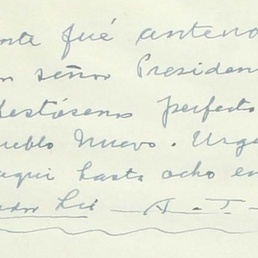 nte fué anteno
n señor Presiden
festósenos perfecto
ueblo Nuevo. Urge
aqui hasta ocho en
ador Lié — A. — T. —